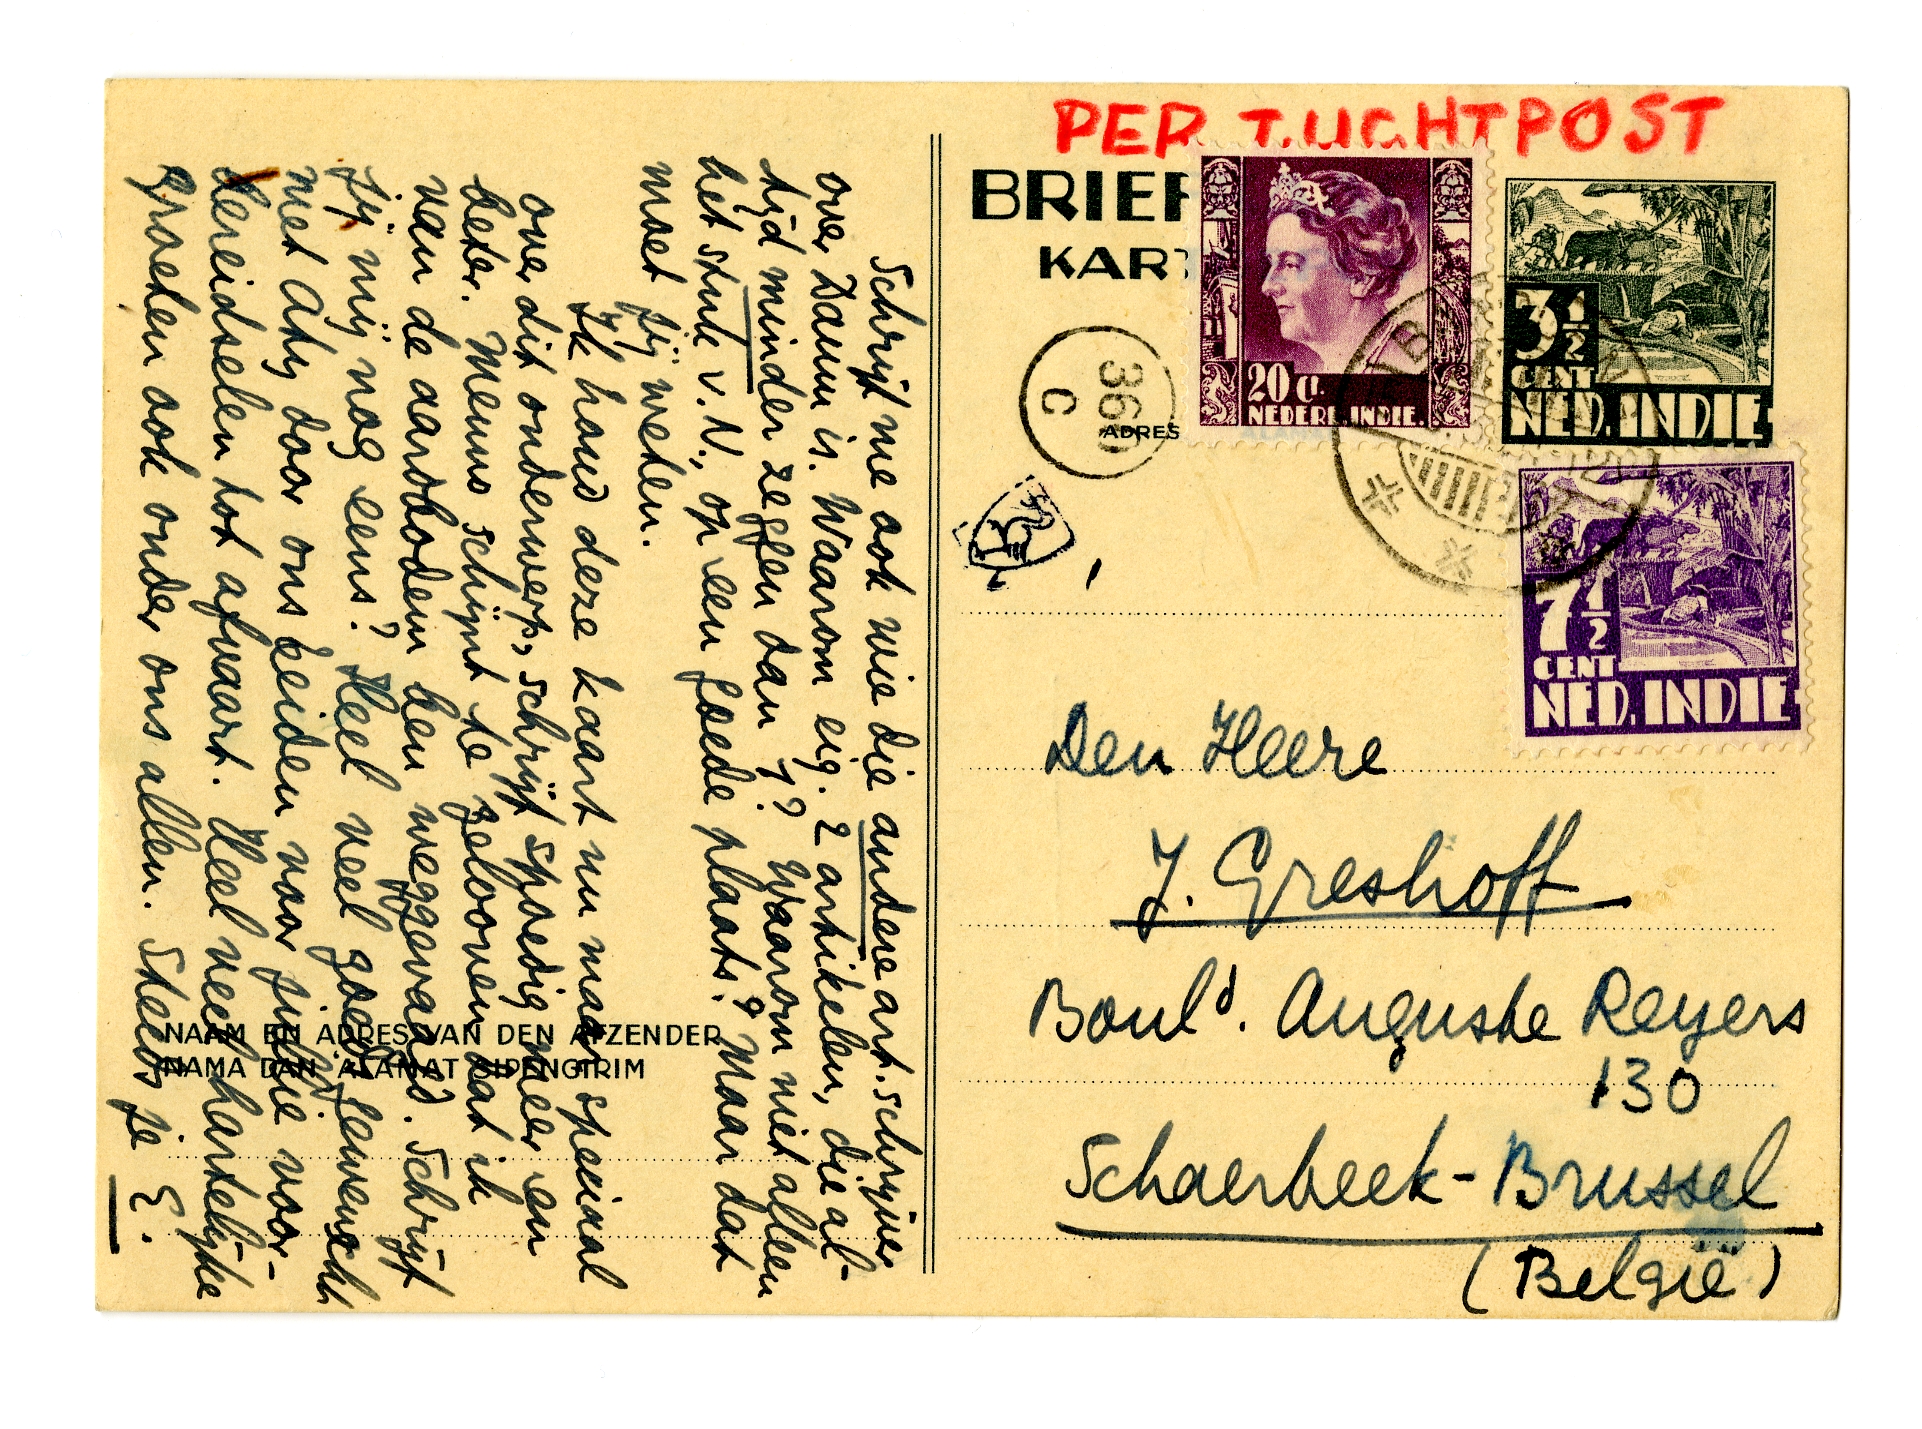 Schrijf me ook wie die andere art. schrijver
over Daum is. Waarom eig. 2 artikelen, die al-
tijd minder zeggen dan 1? Waarom niet alleen
het stuk v. N., op een goede plaats? Maar dat
moet jij weten.
Ik houd deze kaart nu maar speciaal
over dit onderwerp, schrijf spoedig meer en
beter. Menno schijnt te gelooven dat ik
van de aardbodem ben weggevaagd. Schrijf
jij mij nog eens? Heel veel goeds gewenscht
met Aty door ons beiden voor jullie voor-
bereidselen tot afvaart. Heel veel hartelijke
groeten ook onder ons allen. Steeds je E.
NAAM EN ADRES VAN DEN AFZENDER
NAMA DAN ALAMAT SIPENGIRIM
PER LUCHTPOST
BRIEF
KART
ADRES
36
C
20 ct.
NEDERL. INDIE.
3½
CENT
NED. INDIE
7½
CENT
NED. INDIE
Den Heere
J. Greshoff
Bould. Auguste Reyers
130
Schaerbeek-Brussel
(België)